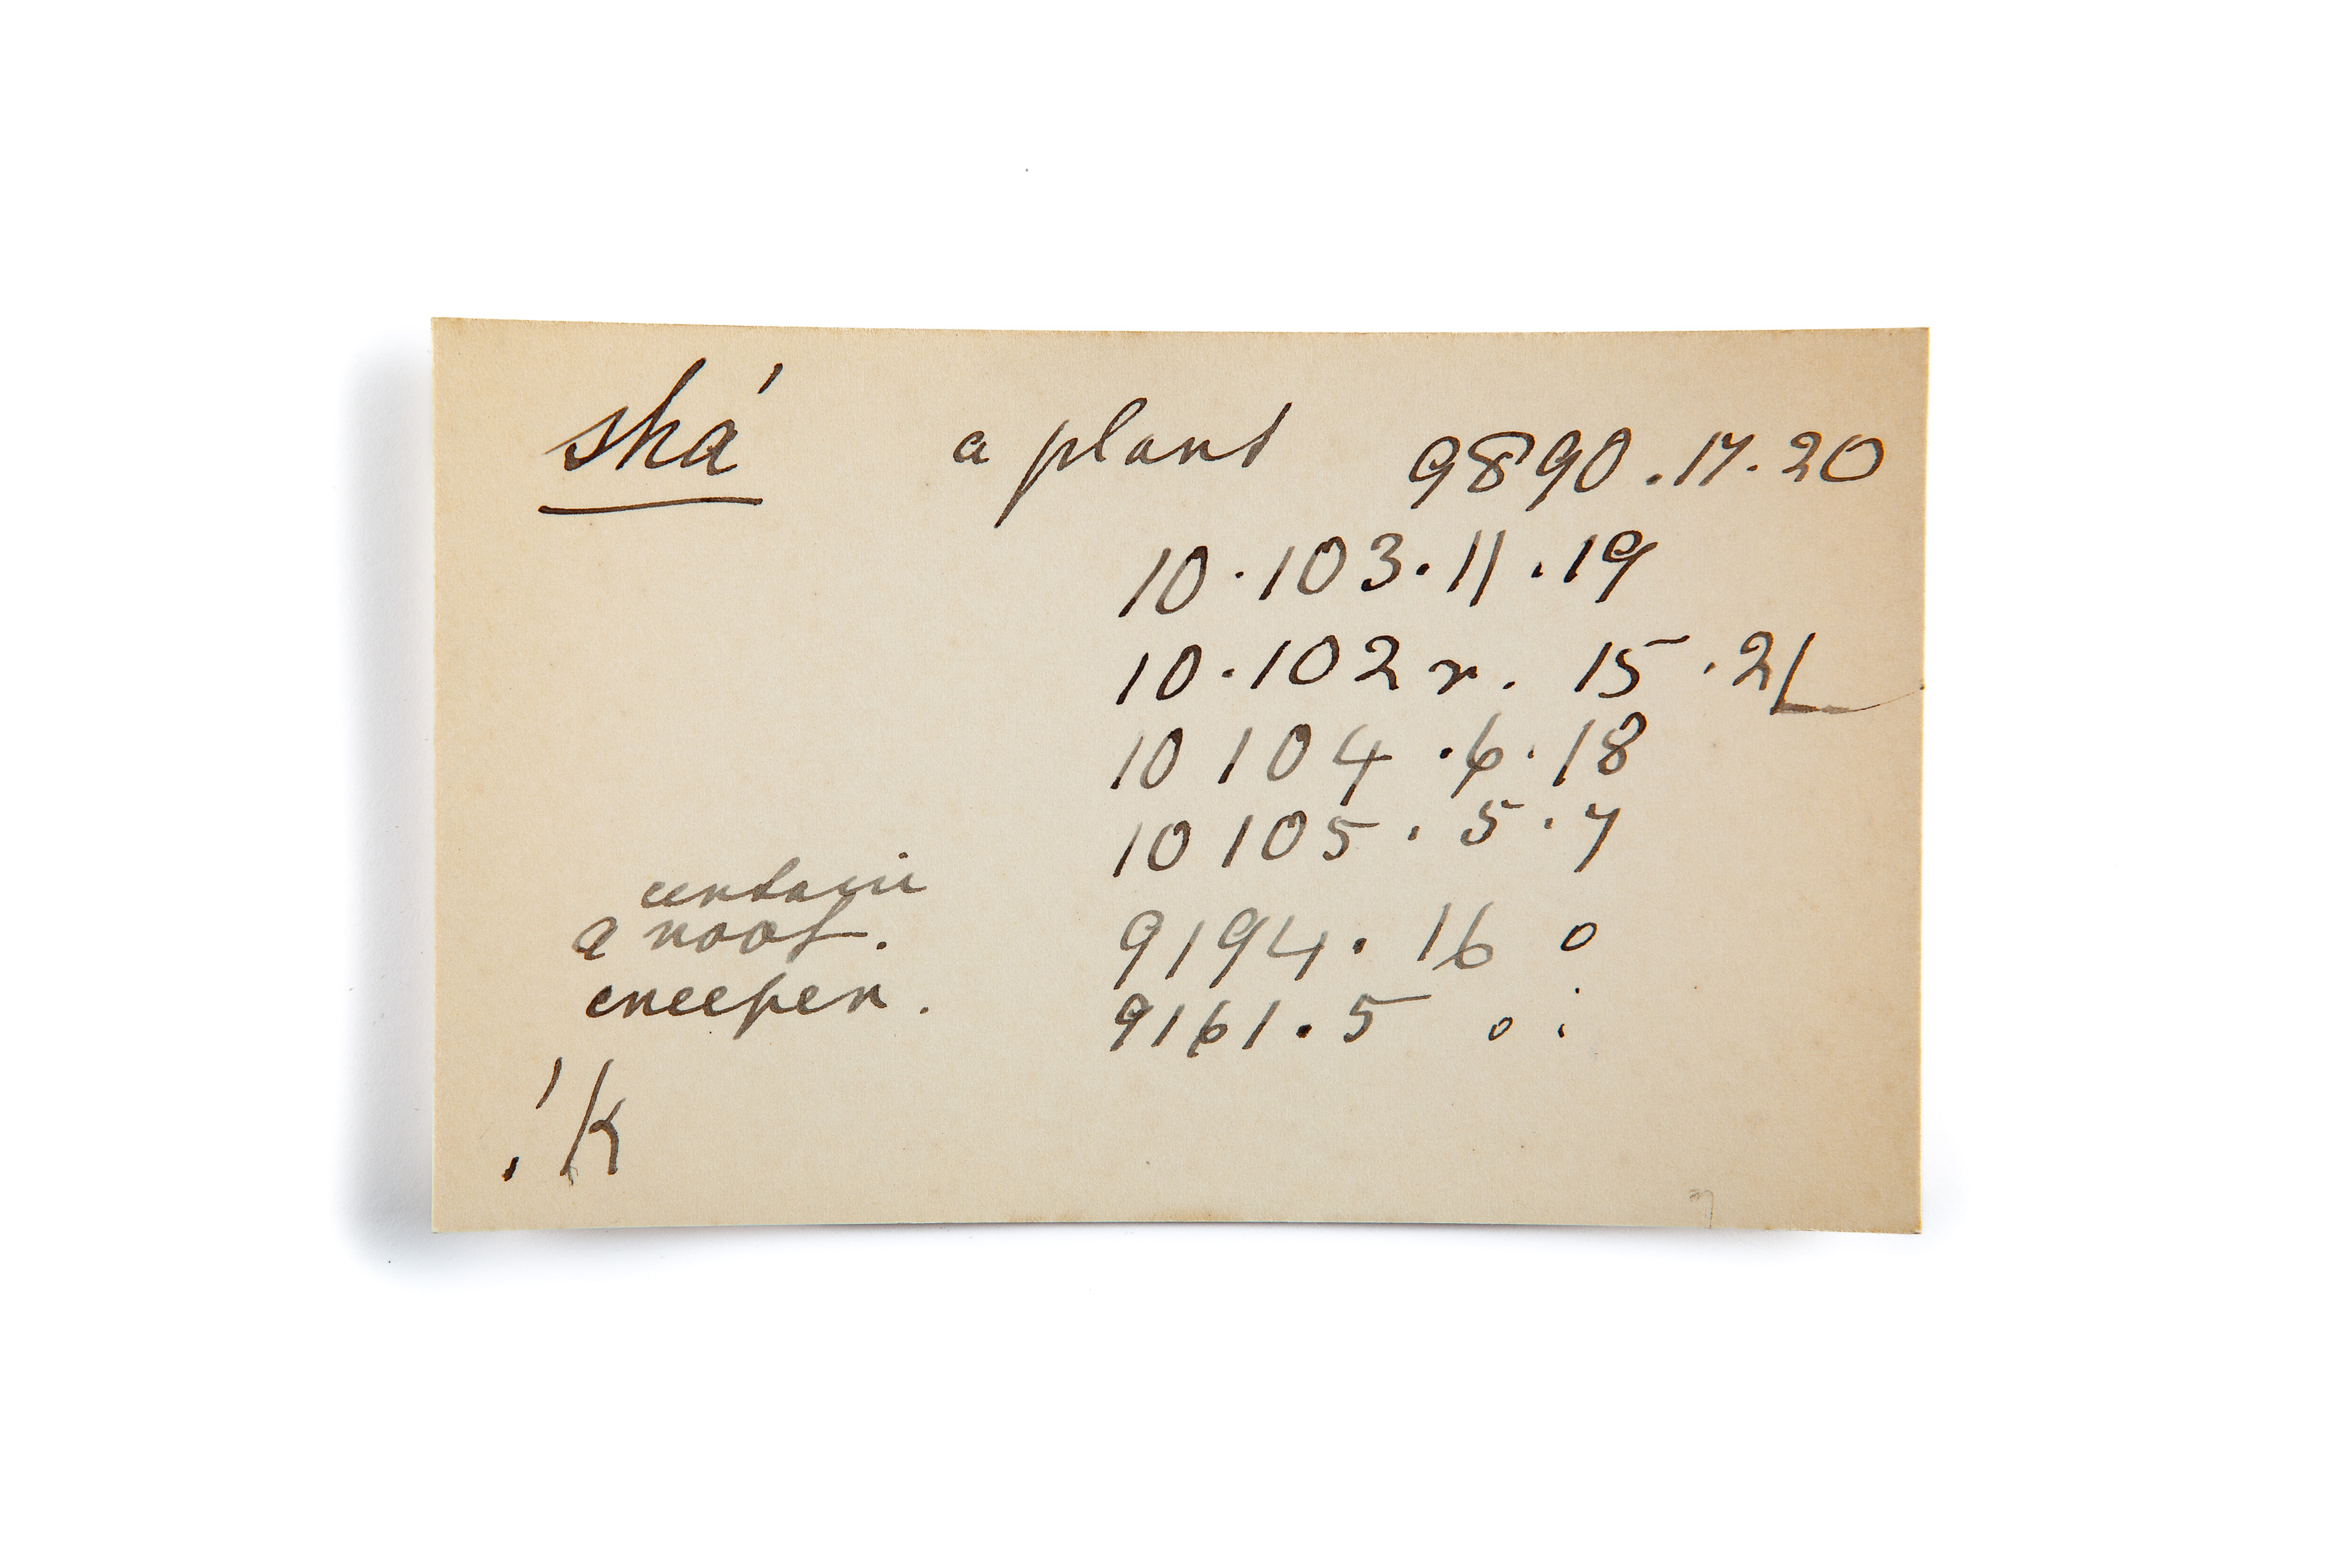 shá a plant 9890.17.20
10.103.11.19
10.102 r. 15.21
10 104.6.18
10 105.5.7
certain
a root. 9194.16 o
creeper. 9161.5 o
!K